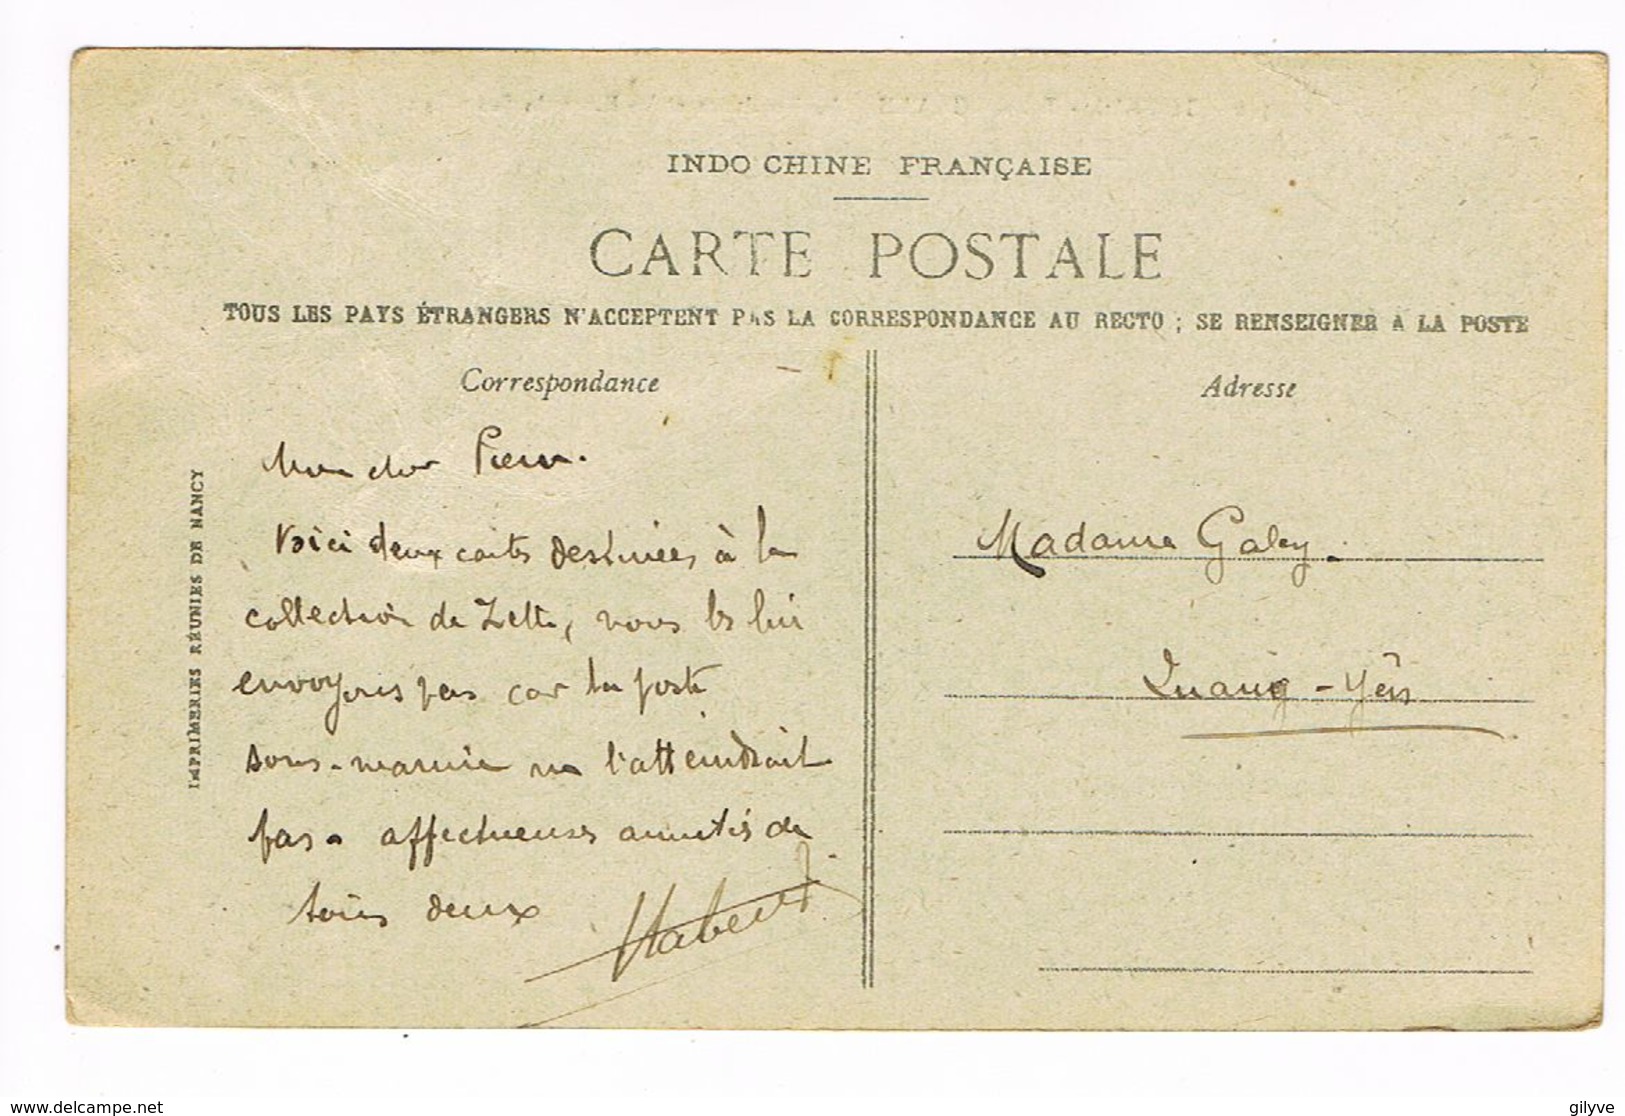 INDO CHINE FRANÇAISE
CARTE POSTALE
TOUS LES PAYS ÉTRANGERS N'ACCEPTENT PAS LA CORRESPONDANCE AU RECTO ; SE RENSEIGNER A LA POSTE
Correspondance
Adresse
IMPRIMERIES RÉUNIES DE NANCY
Mon cher
Voici deux cartes destinées à la
collection de Zette, nous les lui
envoyons pas car la poste
sous-marine ne l'atteindrait
pas. affectueuses amitiés de
tous deux
Madame Galey.
Quang-Yên
www.delcampe.net
gilyve